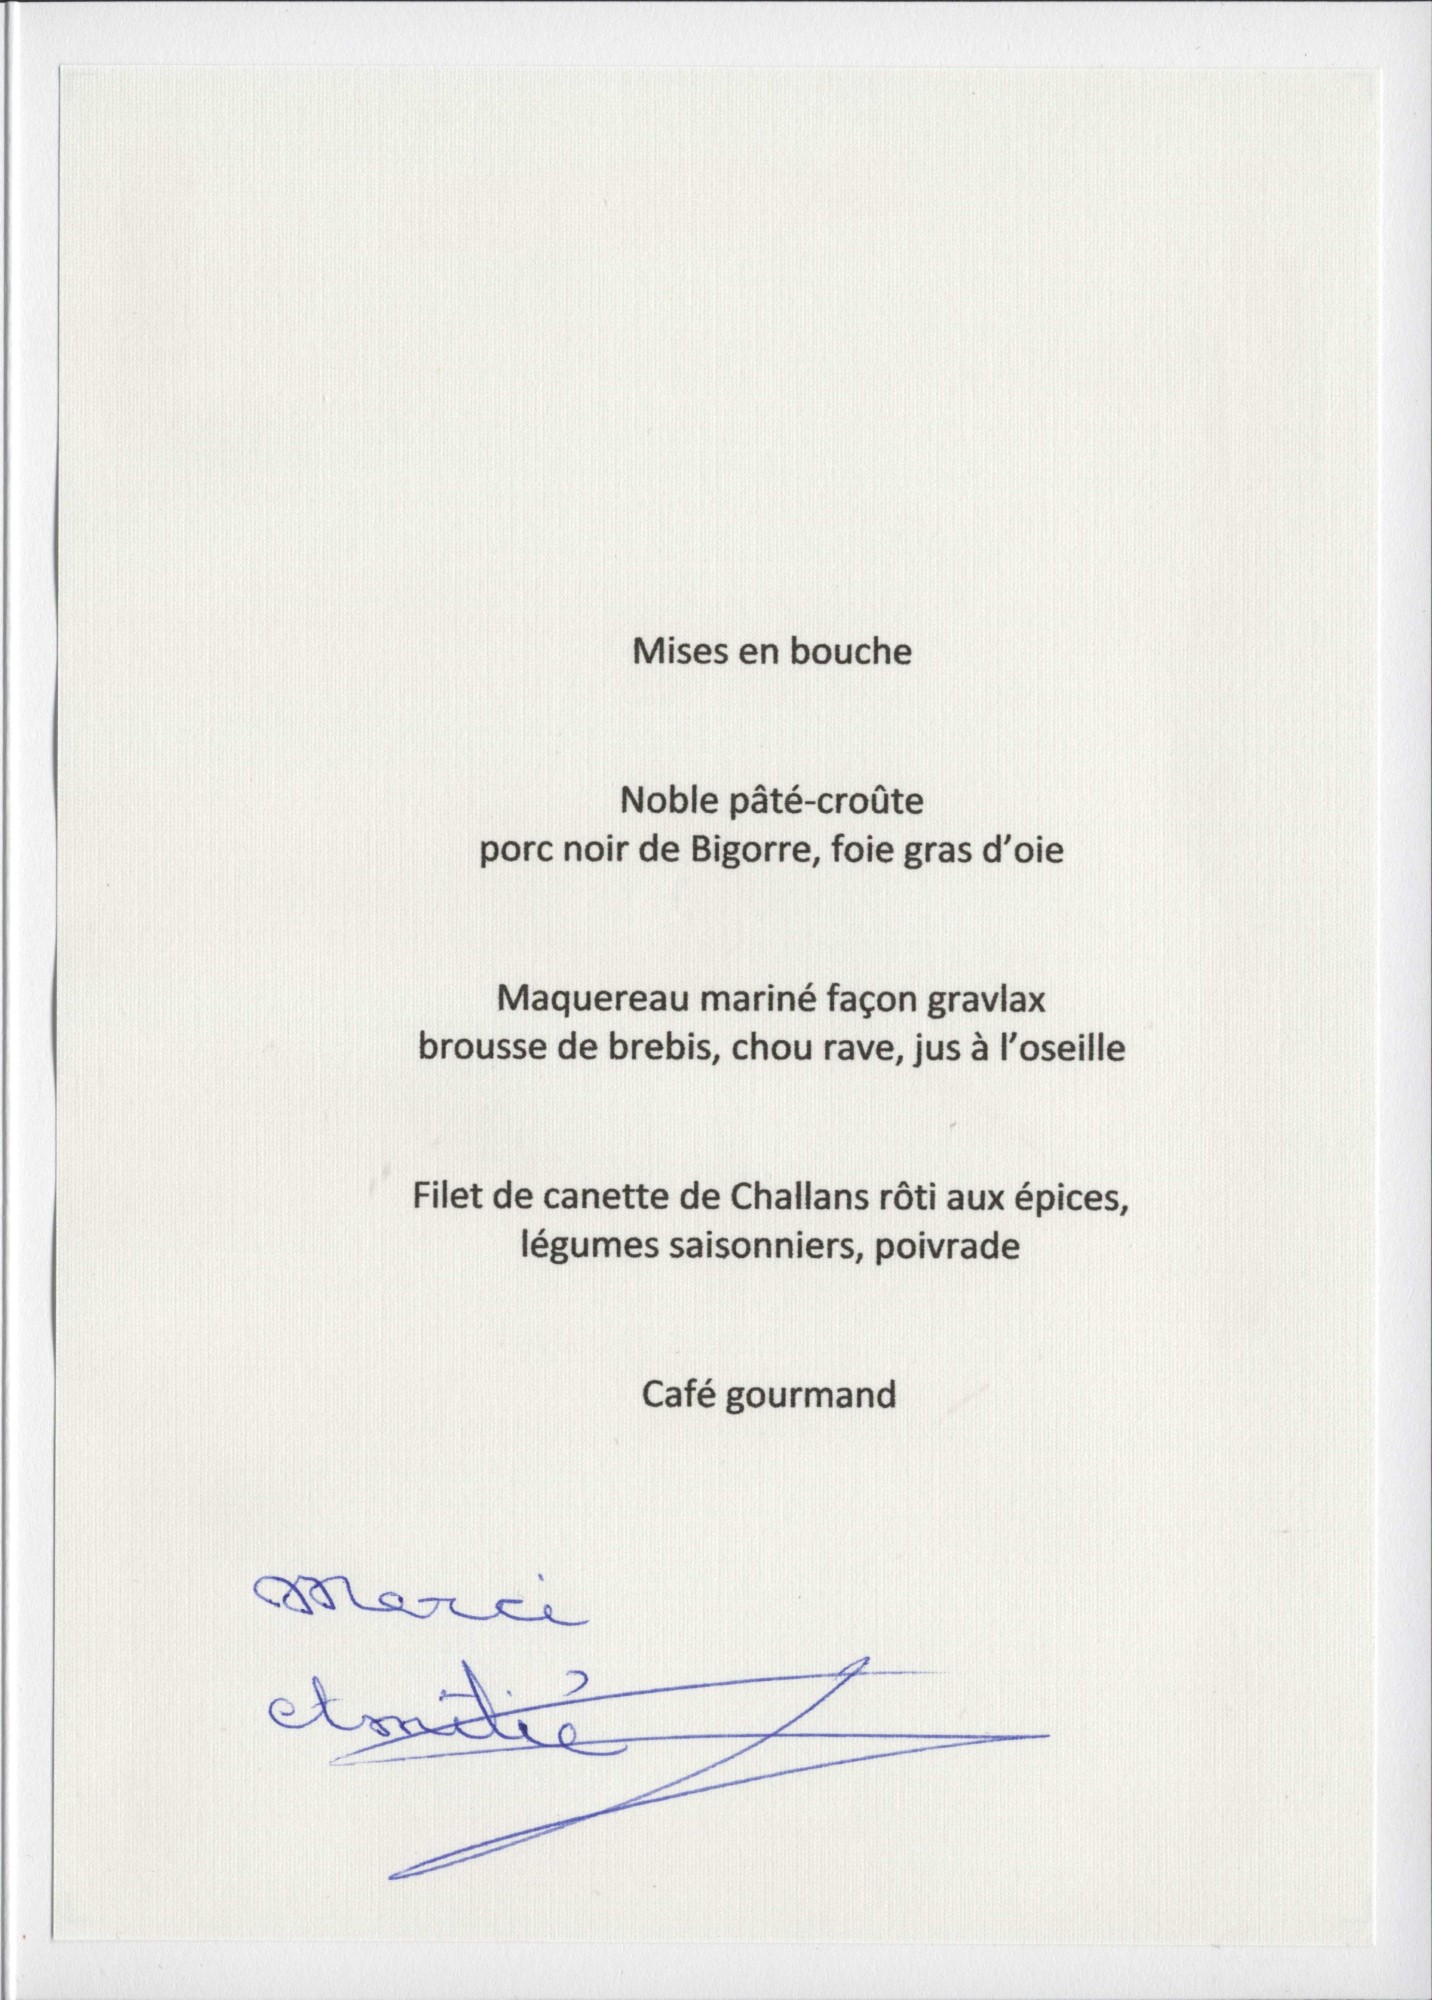 Mises en bouche
Noble pâté-croûte
porc noir de Bigorre, foie gras d’oie
Maquereau mariné façon gravlax
brousse de brebis, chou rave, jus à l’oseille
Filet de canette de Challans rôti aux épices,
légumes saisonniers, poivrade
Café gourmand
Merci
Amitié